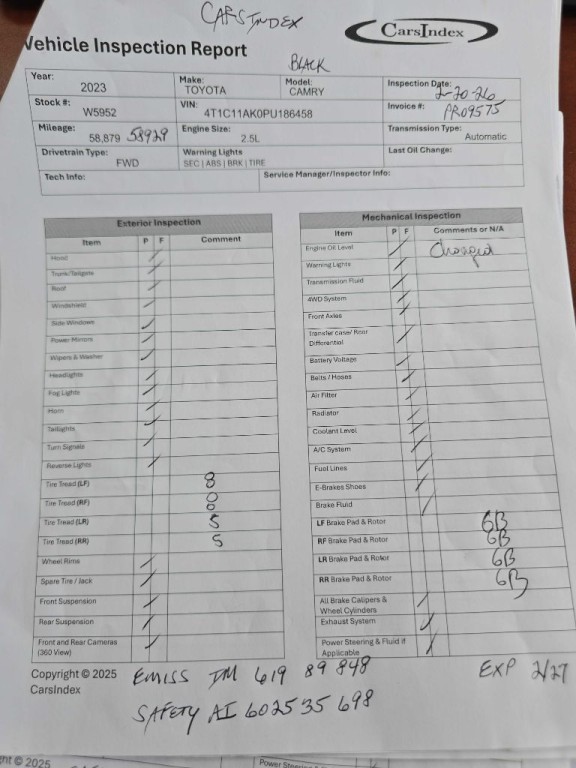 CARSINDEX
CarsIndex
Vehicle Inspection Report
BLACK
Year: 2023 Make: TOYOTA Model: CAMRY Inspection Date: 2-20-26
Stock #: W5952 VIN: 4T1C11AK0PU186458 Invoice #: AR09575
Mileage: 58,879 58929 Engine Size: 2.5L Transmission Type: Automatic
Drivetrain Type: FWD Warning Lights SEC | ABS | BRK | TIRE Last Oil Change:
Tech Info: Service Manager/Inspector Info:
Exterior Inspection
Item P F Comment
Hood
Trunk/Tailgate
Roof
Windshield
Side Windows
Power Mirrors
Wipers & Washer
Headlights
Fog Lights
Horn
Taillights
Turn Signals
Reverse Lights
Tire Tread (LF) 8
Tire Tread (RF) 8
Tire Tread (LR) 5
Tire Tread (RR) 5
Wheel Rims
Spare Tire / Jack
Front Suspension
Rear Suspension
Front and Rear Cameras
(360 View)
Mechanical Inspection
Item P F Comments or N/A
Engine Oil Level Changed
Warning Lights
Transmission Fluid
4WD System
Front Axles
Transfer case/ Rear
Differential
Battery Voltage
Belts / Hoses
Air Filter
Radiator
Coolant Level
A/C System
Fuel Lines
E-Brakes Shoes
Brake Fluid
LF Brake Pad & Rotor 6B
RF Brake Pad & Rotor 6B
LR Brake Pad & Rotor 6B
RR Brake Pad & Rotor 6B
All Brake Calipers &
Wheel Cylinders
Exhaust System
Power Steering & Fluid if
Applicable
Copyright © 2025
CarsIndex
EMISS IM 619 89 848 EXP 2/27
SAFETY AI 602535 698
ht © 2025
Power Steering